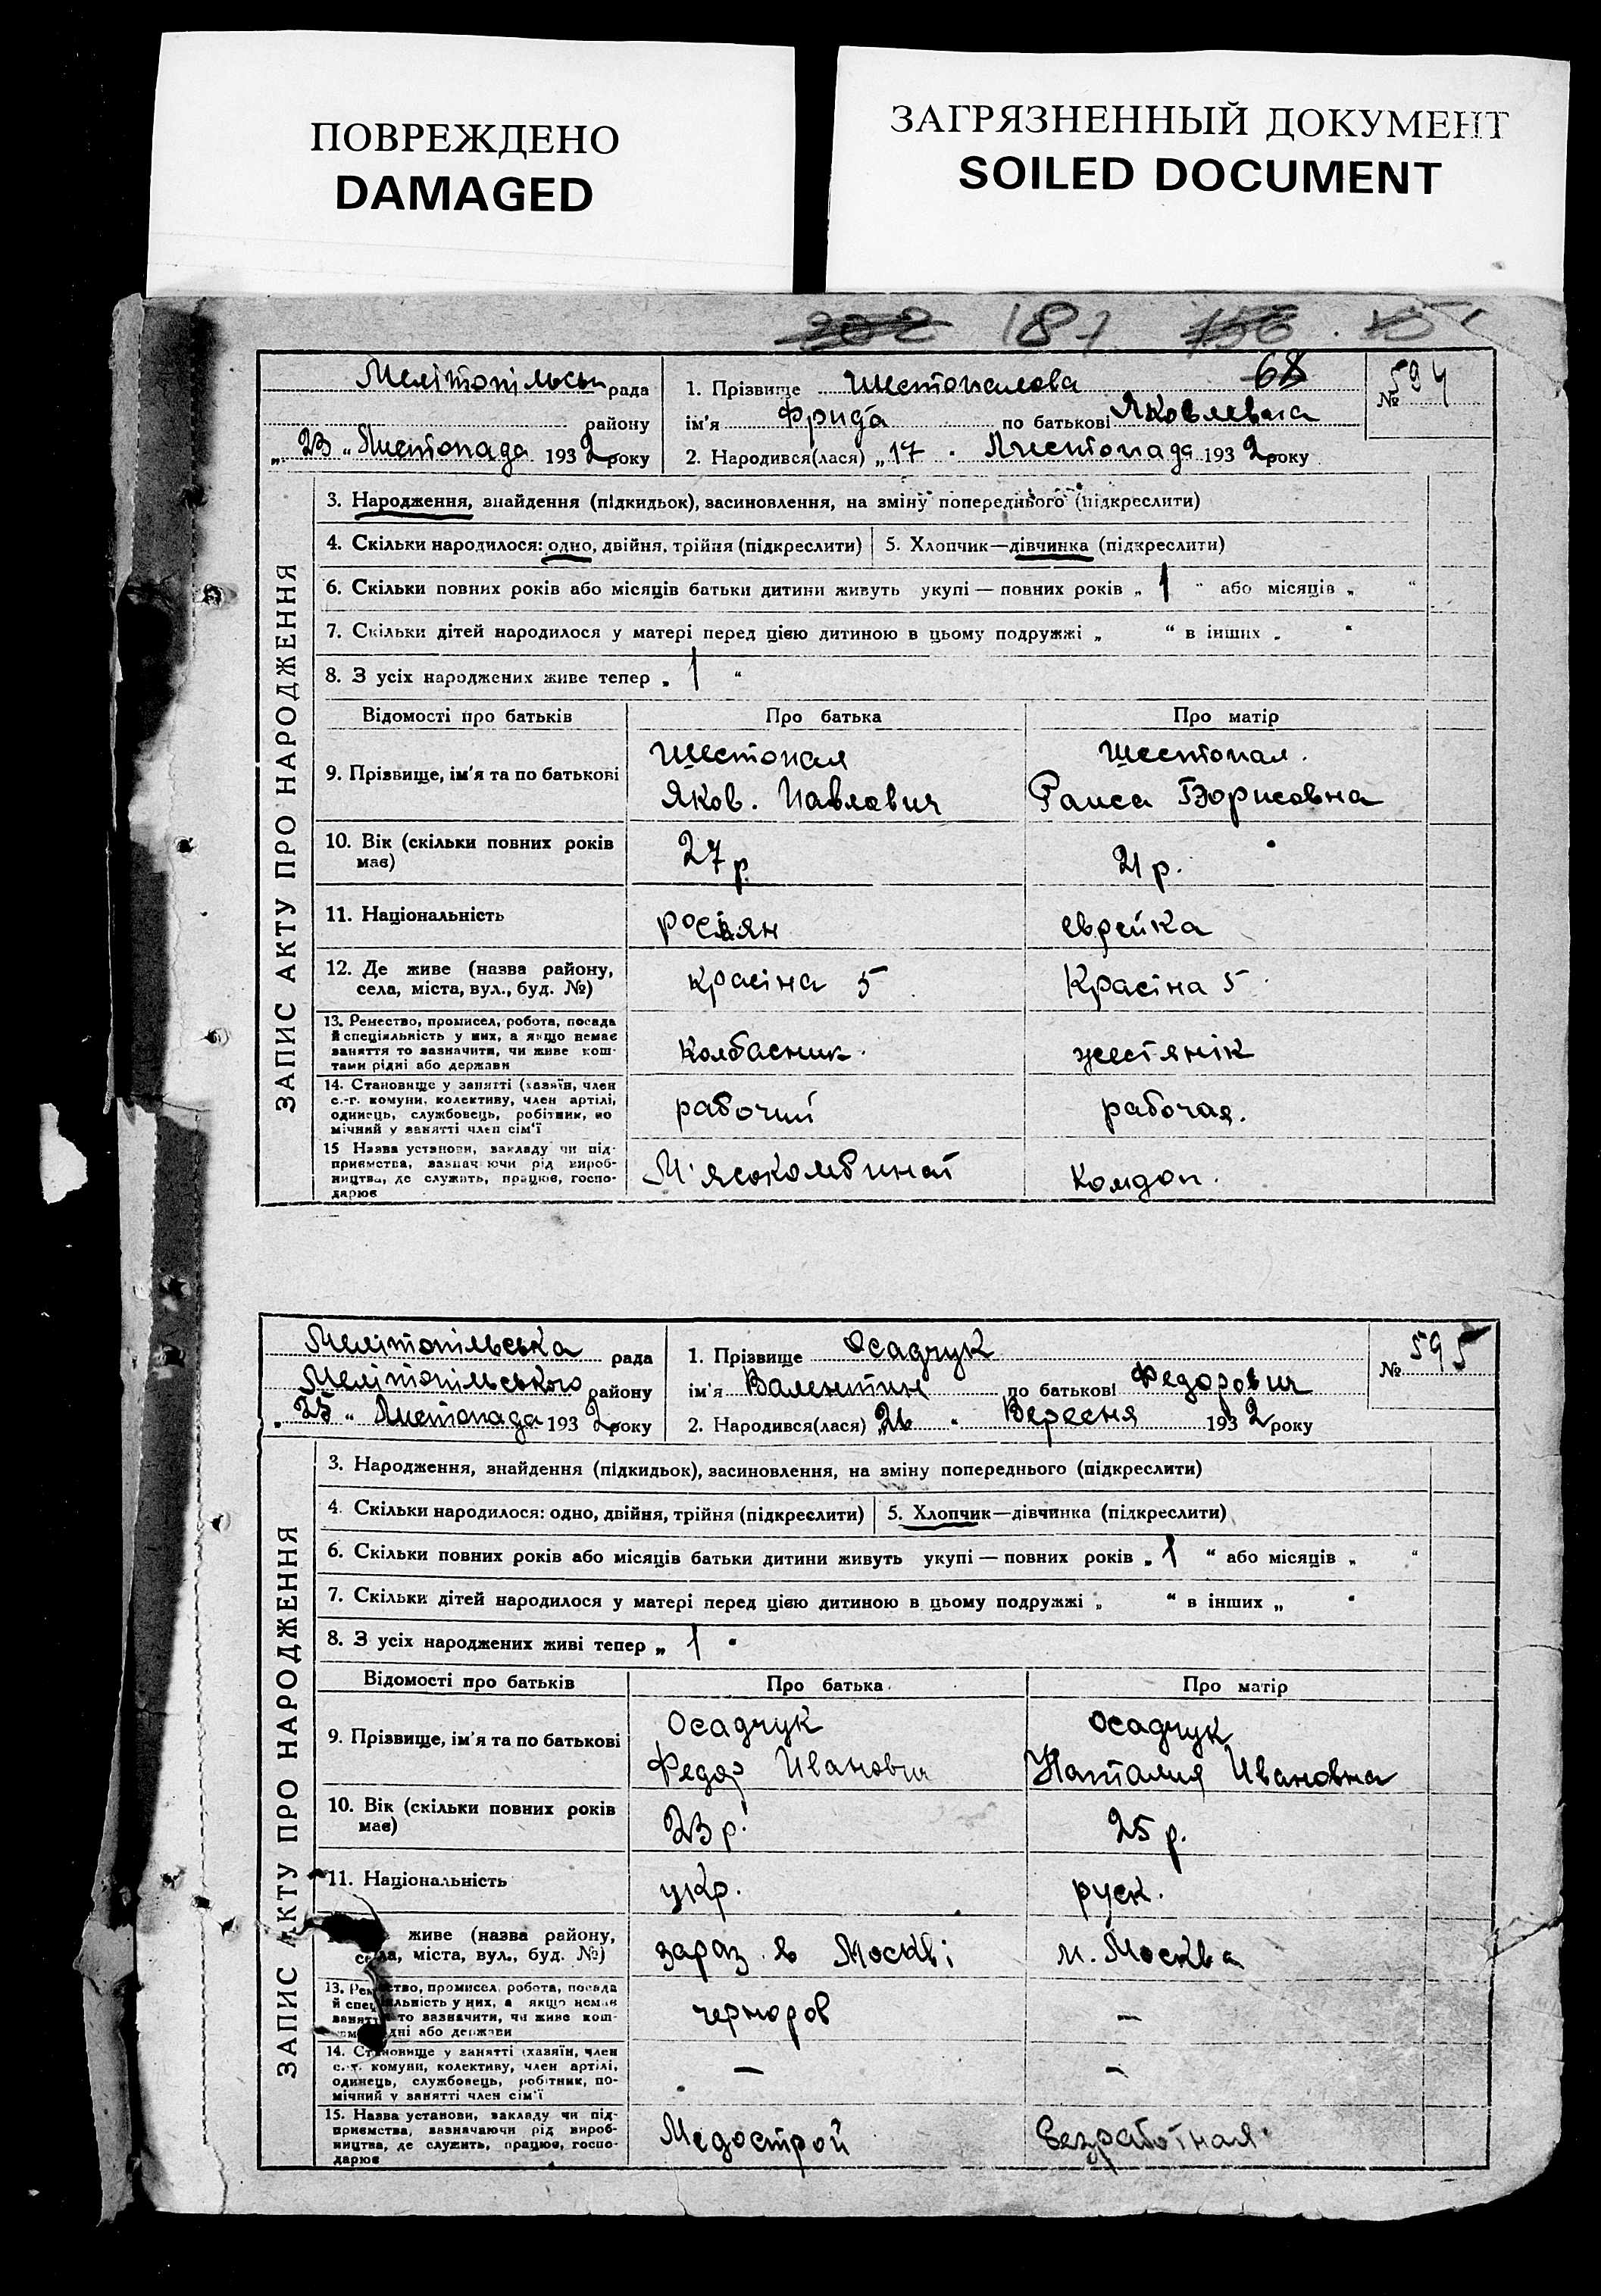 ПОВРЕЖДЕНО
DAMAGED
ЗАГРЯЗНЕННЫЙ ДОКУМЕНТ
SOILED DOCUMENT
202 187 156
68
Мелітопільськ рада
району
„ 23 " Листопада 1932 року
1. Прізвище Шестопалова
ім'я Фрида по батькові Яковлевна
2. Народився(лася) „ 17 " Листопада 1932 року
№ 594
ЗАПИС АКТУ ПРО НАРОДЖЕННЯ
3. Народження, знайдення (підкидьок), засиновлення, на зміну попереднього (підкреслити)
4. Скільки народилося: одно, двійня, трійня (підкреслити) 5. Хлопчик—дівчинка (підкреслити)
6. Скільки повних років або місяців батьки дитини живуть укупі — повних років „ 1 " або місяців „ "
7. Скільки дітей народилося у матері перед цією дитиною в цьому подружжі „ " в інших „ "
8. З усіх народжених живе тепер „ 1 "
Відомості про батьків Про батька Про матір
9. Прізвище, ім'я та по батькові
Шестопал
Яков. Павлович
Шестопал.
Раиса Борисовна
10. Вік (скільки повних років має)
27 р.
21 р.
11. Національність
росіян
еврейка
12. Де живе (назва району,
села, міста, вул., буд. №)
красіна 5
Красіна 5
13. Ремество, промисел, робота, посада
й спеціяльність у них, а якщо немає
заняття то зазначити, чи живе кош-
тами рідні або держави
Колбасник.
жестянік
14. Становище у занятті (хазяїн, член
с.-г. комуни, колективу, член артілі,
одинець, службовець, робітник, по
мічний у занятті член сім'ї
рабочий
рабочая.
15 Назва установи, закладу чи під-
приємства, зазначаючи рід вироб-
ництва, де служить, працює, госпо-
дарює
М'ясокомбинат
Комдоп.
Мелітопільська рада
Мелітопільського району
„ 25 " Листопада 1932 року
1. Прізвище Осадчук
ім'я Валентин по батькові Федорович
2. Народився(лася) „ 26 " Вересня 1932 року
№ 595
ЗАПИС АКТУ ПРО НАРОДЖЕННЯ
3. Народження, знайдення (підкидьок), засиновлення, на зміну попереднього (підкреслити)
4. Скільки народилося: одно, двійня, трійня (підкреслити) 5. Хлопчик—дівчинка (підкреслити)
6. Скільки повних років або місяців батьки дитини живуть укупі — повних років „ 1 " або місяців „ "
7. Скільки дітей народилося у матері перед цією дитиною в цьому подружжі „ " в інших „ "
8. З усіх народжених живі тепер „ 1 "
Відомості про батьків Про батька Про матір
9. Прізвище, ім'я та по батькові
Осадчук
Федор Иванович
Осадчук
Наталия Ивановна
10. Вік (скільки повних років
має)
23 р.
25 р.
11. Національність
укр.
руск.
живе (назва району,
села, міста, вул., буд. №)
зараз в Москві
м. Москва
13. Ремество, промисел, робота, посада
й спеціяльність у них, а якщо немає
заняття то зазначити, чи живе кош-
рідні або держави
чернороб
—
14. Становище у занятті (хазяїн, член
с.-г. комуни, колективу, член артілі,
одинець, службовець, робітник, по-
мічний у занятті член сім'ї
—
—
15. Назва установи, закладу чи під-
приємства, зазначаючи рід вироб-
ництва, де служить, працює, госпо-
дарює
Медострой
безработная